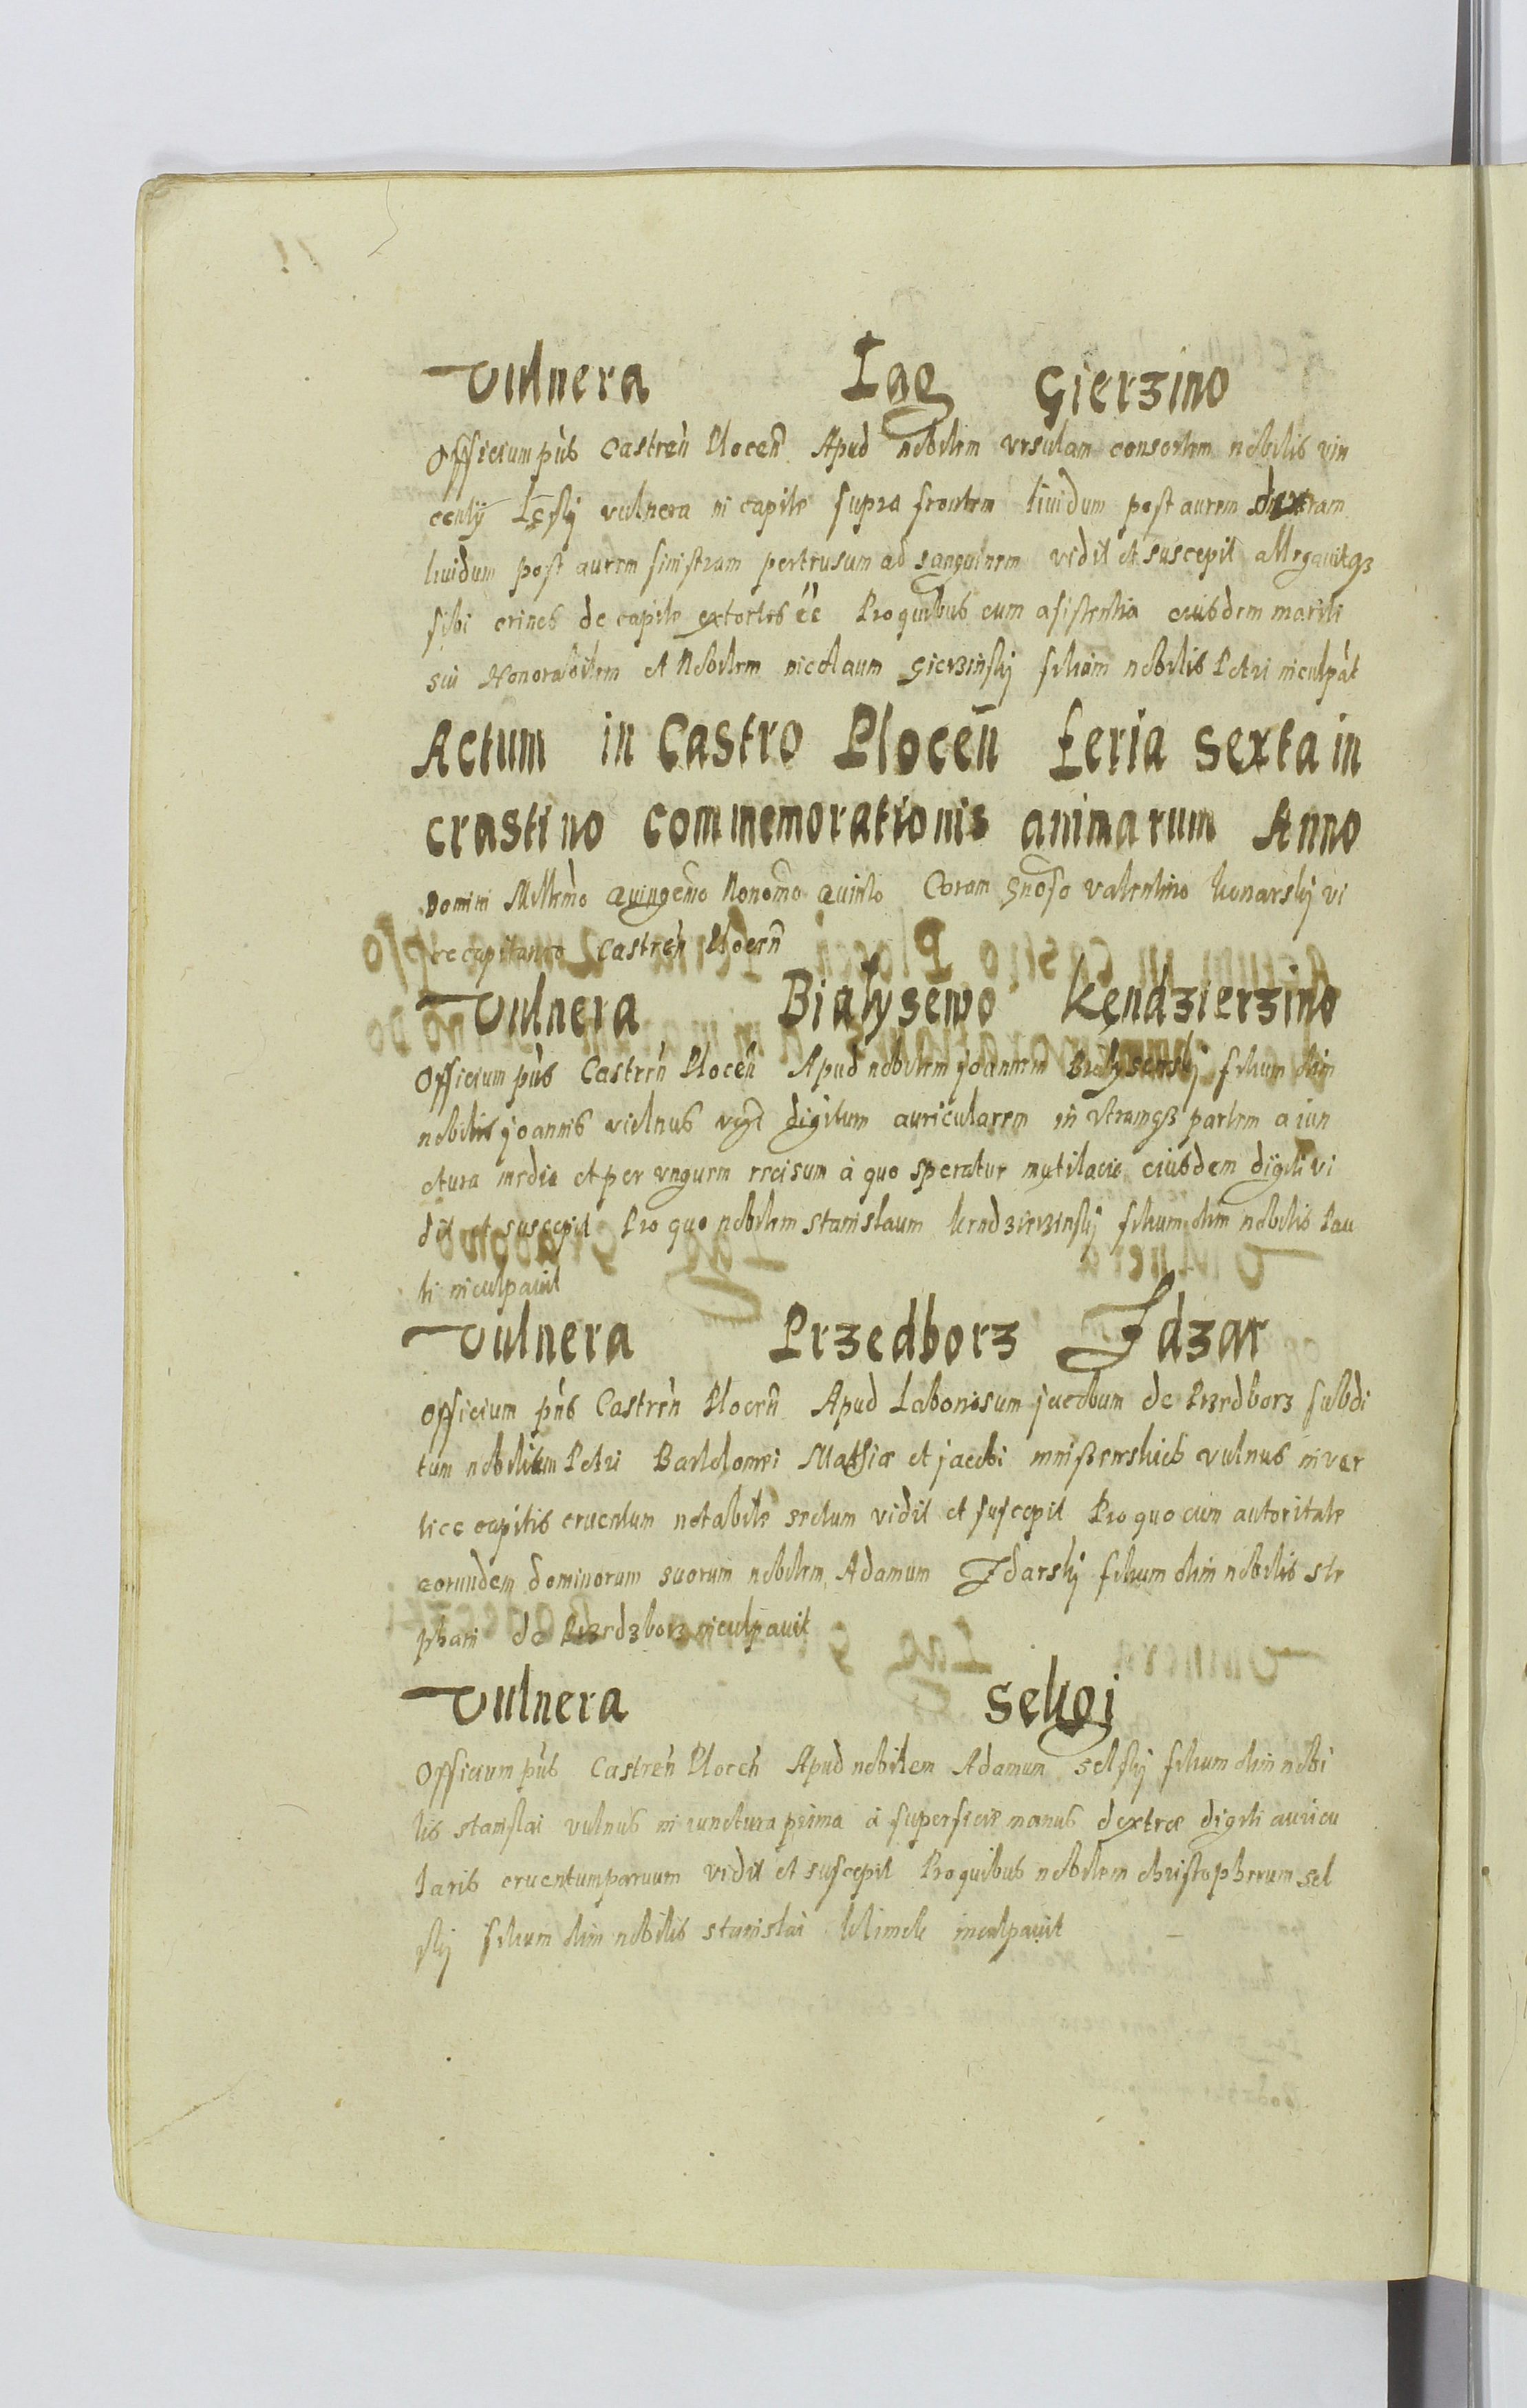 Vulnera Lag Gierzino
Officium pns Castren Plocen Apud nobilem Vrsulam consortem nobilis vin
centy Lęsky vulnera in capite supra frontem liuidum post aurem dextram
liuidum post aurem sinistram pertrusum ad sanguinem vidit et suscepit allegauitqz
sibi crines de capite extortos ee Pro quibus cum asistentia eiusdem mariti
sui Honorabilem et Nobilem nicolaum Gierzinsky filium nobilis Petri inculpat
Actum in Castro Plocen feria sexta in
crastino commemorationis animarum Anno
Domini Millemo Quingemo Nonomo Quinto Coram Gnoso valentino konarsky vi
cecapitaneo Castren Plocen
Vulnera Białysewo Kendzierzino
Officium pns Castren Plocen Apud nobilem joannem Bialysewsky filium olim
nobilis joannis vulnus digitum auricularem in vtramqz partem a iun
ctura media et per vnguem recisum a quo speratur mutilacio eiusdem digiti vi
dit et suscepit Pro quo nobilem stanislaum kendzierzinsky filium olim nobilis Pau
li inculpauit
Vulnera Przedborz Jdzar
Officium pns Castren Plocen Apud Laboriosum jacobum de Przedborz subdi
tum nobilium Petri Bartolomei Mathiæ et jacobi mniszewskich vulnus in ver
tice capitis cruentum notabile sectum vidit et suscepit Pro quo cum autoritate
eorundem dominorum suorum nobilem Adamum Jdarsky filium olim nobilis ste
phani de Przedzborz inculpauit
Vulnera Selugi
Officium pns Castren Plocen Apud nobilem Adamum selsky filium olim nobi
lis stanislai vulnus in iunctura prima a superficie manus dextræ digiti auricu
laris cruentum paruum vidit et suscepit Pro quibus nobilem christopherum sel
sky filium olim nobilis stanislai klimek inculpauit